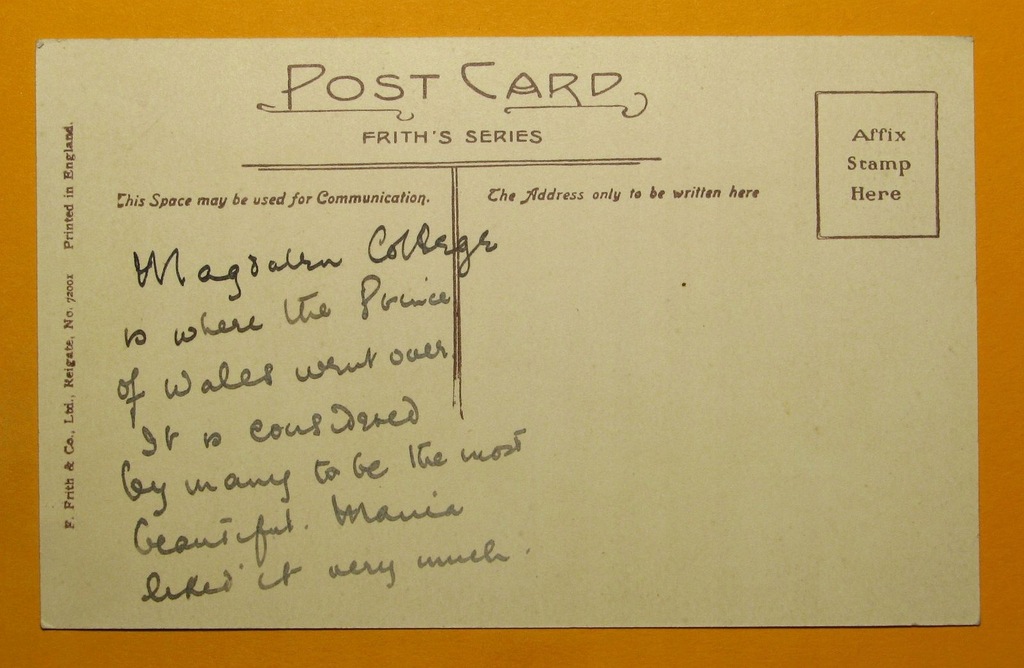 POST CARD
FRITH'S SERIES
This Space may be used for Communication.
The Address only to be written here
Affix
Stamp
Here
F. Frith & Co., Ltd., Reigate, No. 72001 Printed in England.
Magdalen College
is where the Prince
of Wales went over.
It is considered
by many to be the most
beautiful. Maria
liked it very much.